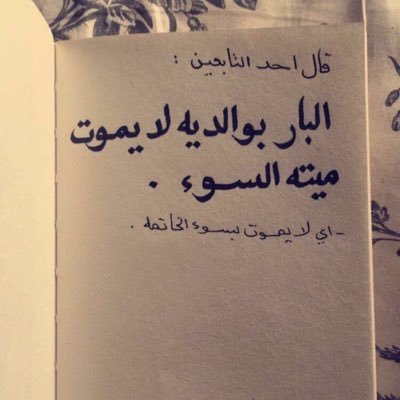 قال احد التابعين :
البار بوالديه لا يموت
ميته السوء .
- اي لا يموت بسوء الخاتمه .